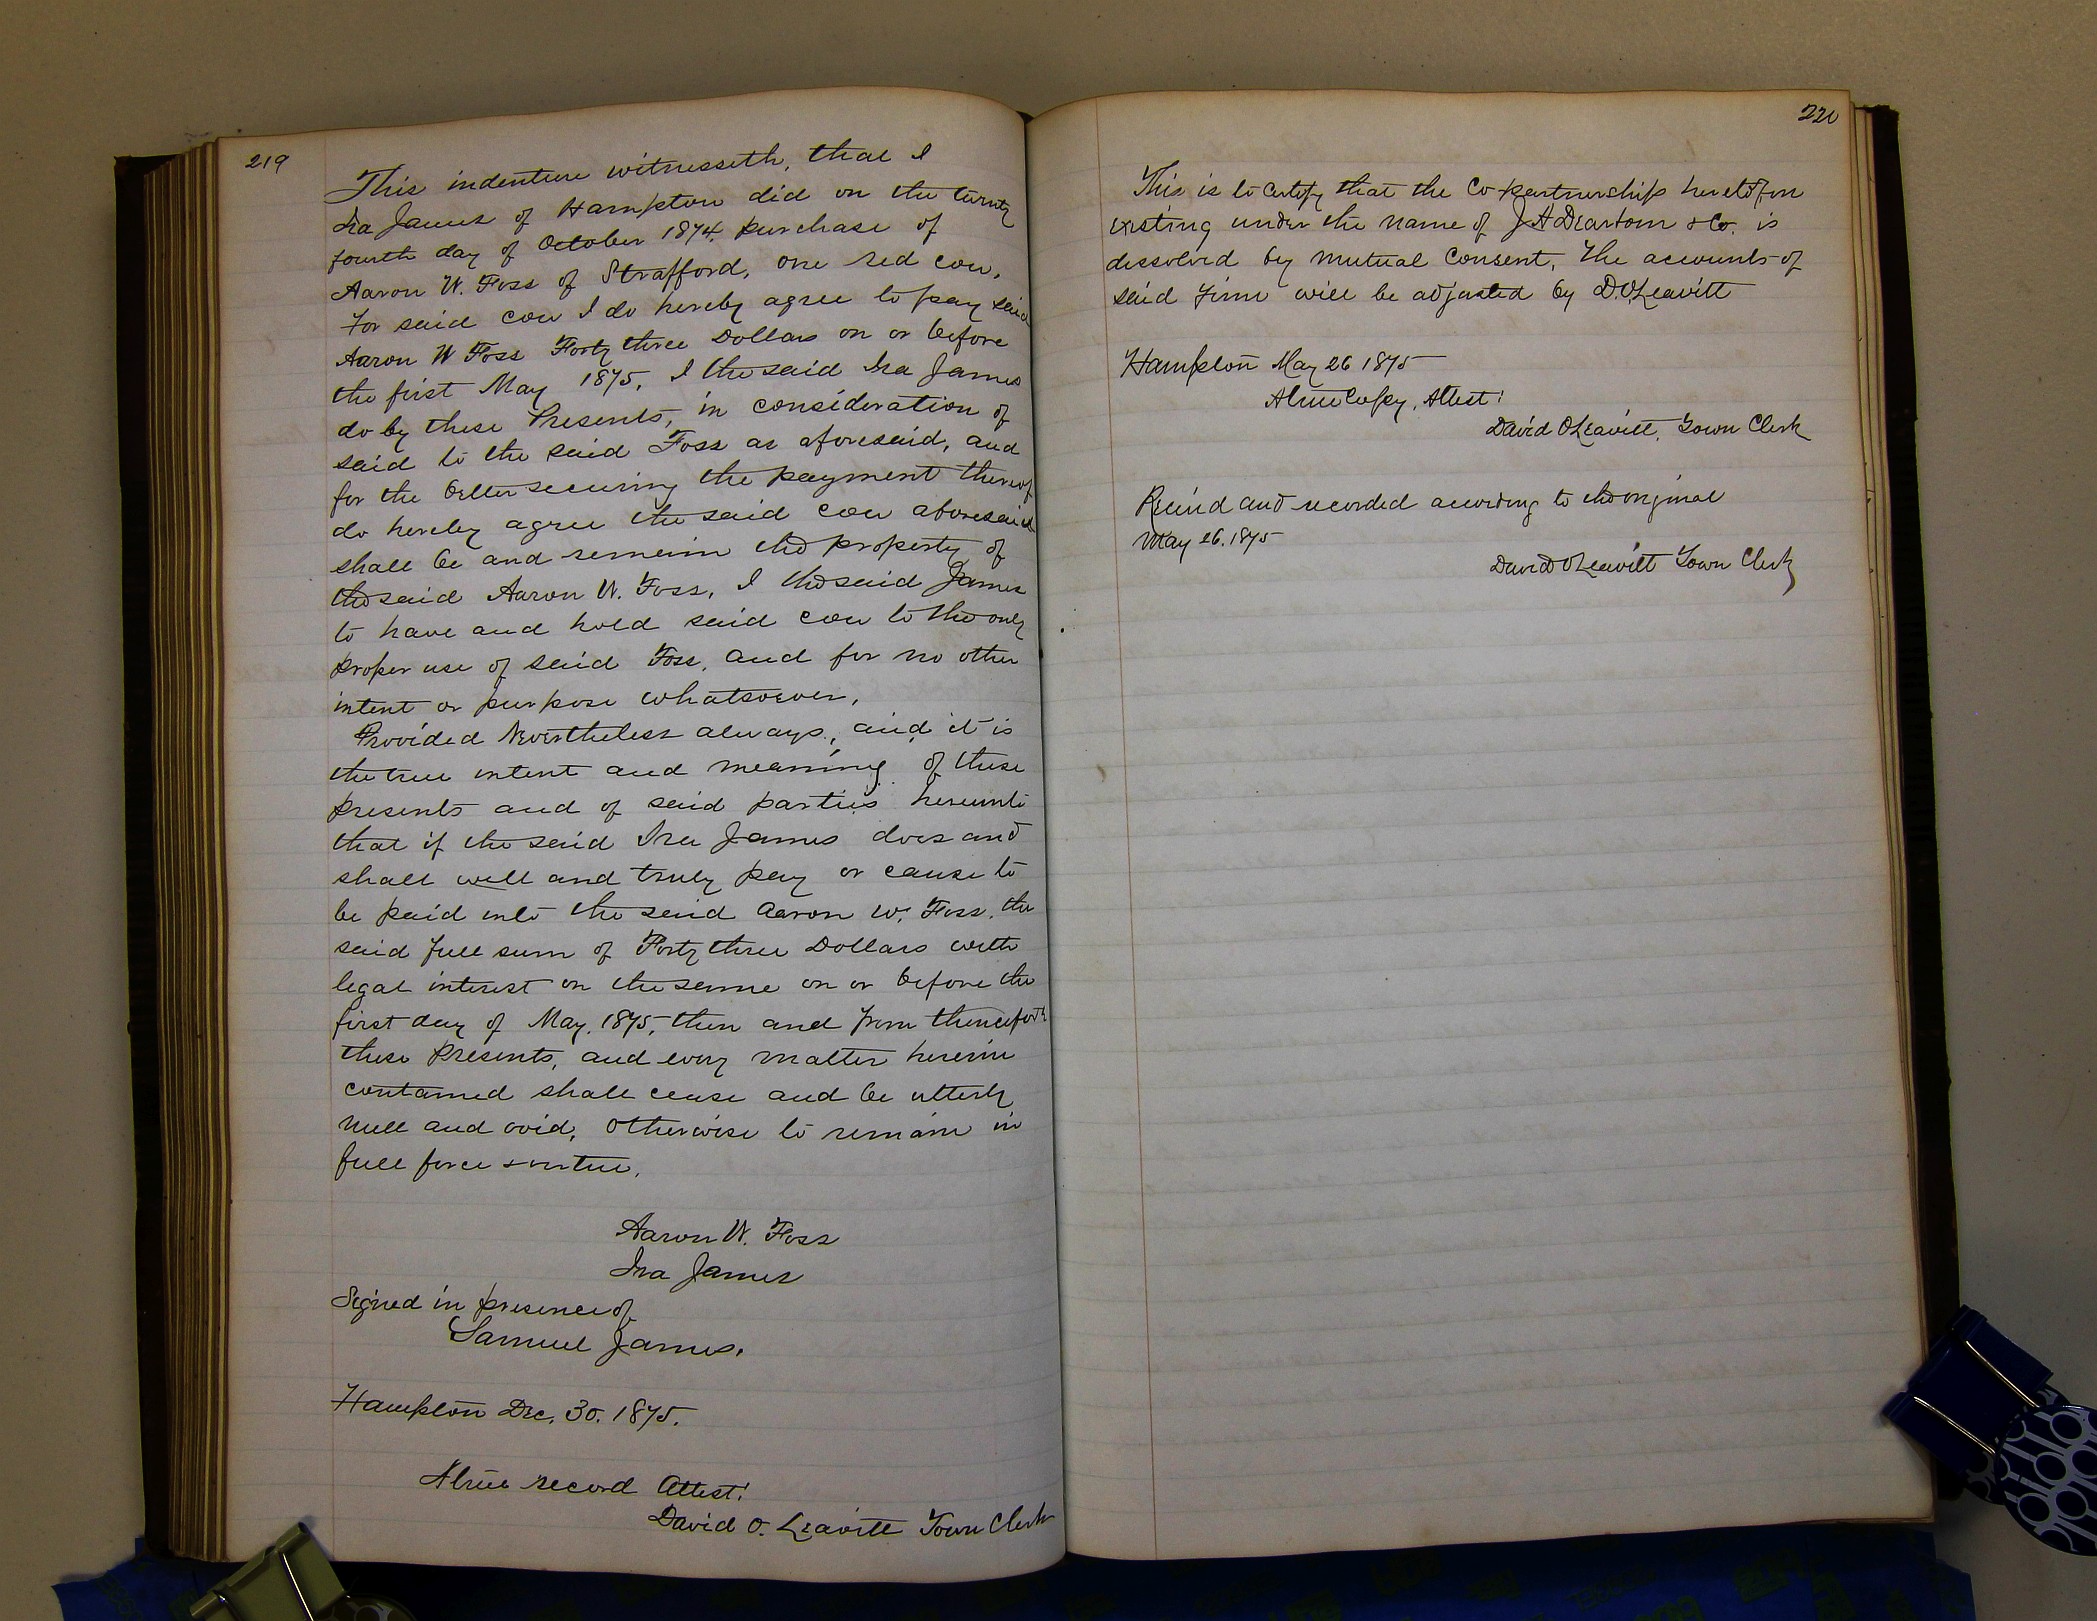 219
This indenture witnesseth, that I
Ira James of Hampton did on the twenty
fourth day of October 1874, purchase of
Aaron W. Foss of Strafford, one red cow,
For said cow I do hereby agree to pay said
Aaron W Foss Forty three Dollars on or before
the first May 1875, I the said Ira James
do by these Presents, in consideration of
said to the said Foss as aforesaid, and
for the better securing the payment thereof
do hereby agree the said cow aforesaid
shall be and remain the property of
the said Aaron W. Foss, I the said James
to have and hold said cow to the only
proper use of said Foss, and for no other
intent or purpose whatsoever,
Provided Nevertheless always, and it is
the true intent and meaning of these
presents and of said parties hereunto
that if the said Ira James does and
shall well and truly pay or cause to
be paid unto the said Aaron W. Foss, the
said full sum of Forty three Dollars with
legal interest on the same on or before the
first day of May, 1875, then and from thenceforth
these Presents, and every matter herein
contained shall cease and be utterly
null and void, otherwise to remain in
full force & virtue,
Aaron W. Foss
Ira James
Signed in presence of
Samuel James.
Hampton Dec. 30. 1875.
A true record Attest:
David O. Leavitt Town Clerk
220
This is to certify that the Co-partnership heretofore
existing under the name of J A Dearborn & Co. is
dissolved by mutual Consent, The accounts of
said Firm will be adjusted by D.O. Leavitt
Hampton May 26 1875
A true Copy, Attest:
David O Leavitt, Town Clerk
Rec'd and recorded according to the original
May 26. 1875
David O Leavitt Town Clerk